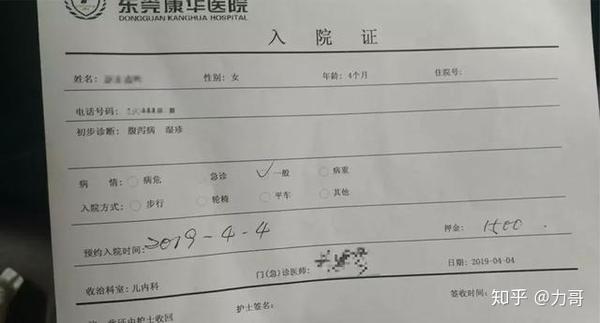 东莞康华医院
DONGGUAN KANGHUA HOSPITAL
入院证
姓名： 性别：女 年龄：4个月 住院号：
电话号码：
初步诊断：腹泻病 湿疹
病 情： 病危 急诊 一般 病重
入院方式： 步行 轮椅 平车 其他
预约入院时间：2019-4-4 押金：1500
收治科室：儿内科 门(急)诊医师： 日期：2019-04-04
护士签名： 签收时间：
知乎 @力哥